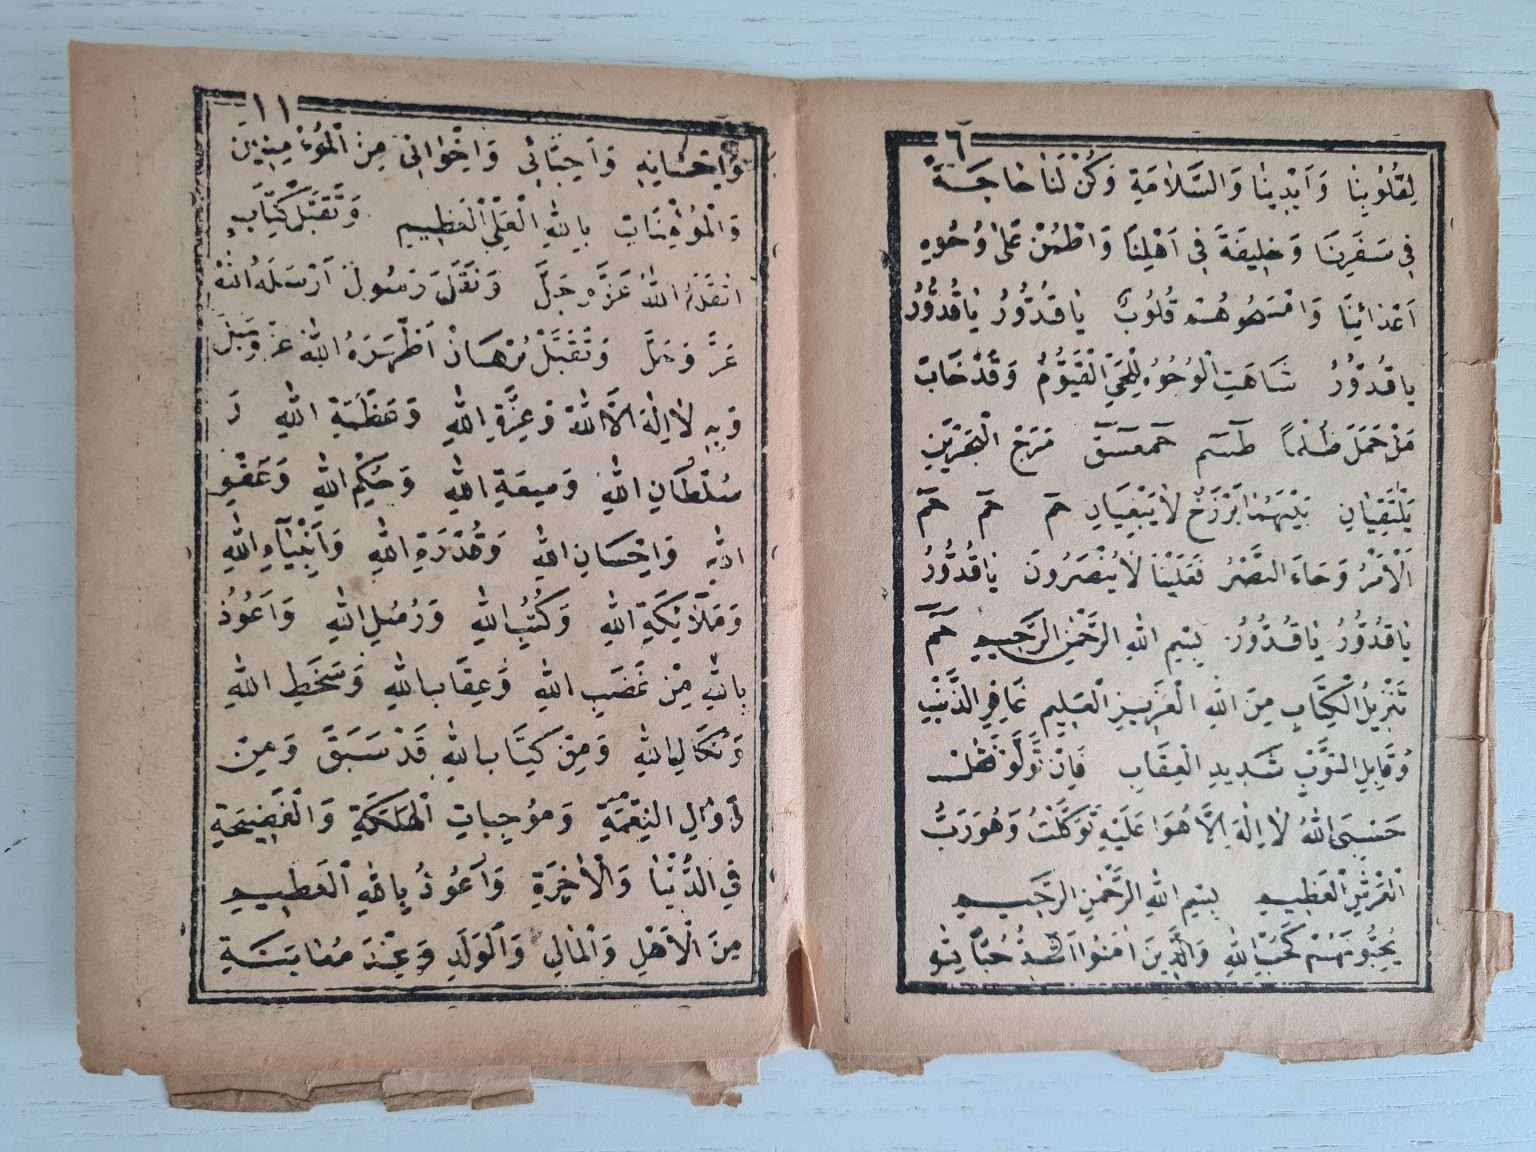 ٦
لِقُلُوبِنَا وَأَبْدِينَا وَالسَّلَامَةِ وَكُنْ لَنَا حَاجَةً
فِي سَفَرِنَا وَخَلِيفَةً فِي اَهْلِنَا وَاطْمِسْ عَلَى وُجُوهِ
اَعْدَائِنَا قُلُوبٌ يَا قُدُّورُ يَا قُدُّورُ
يَا قُدُّورُ شَاهَتِ الْوُجُوهُ لِلْحَيِّ الْقَيُّومُ وَقَدْ خَابَ
مَنْ حَمَلَ ظُلْمًا طٓسٓمٓ حٓمٓعٓسٓقٓ مَرَجَ الْبَحْرَيْنِ
يَلْتَقِيَانِ بَيْنَهُمَا بَرْزَخٌ لَا يَبْغِيَانِ حٓمٓ حٓمٓ حٓمٓ
اَلْاَمْرُ وَجَاءَ النَّصْرُ فَعَلَيْنَا لَا يُنْصَرُونَ يَا قُدُّورُ
يَا قُدُّورُ يَا قُدُّورُ بِسْمِ اللهِ الرَّحْمٰنِ الرَّحِيمِ حٓمٓ
تَنْزِيلُ الْكِتَابِ مِنَ اللهِ الْعَزِيزِ الْعَلِيمِ غَافِرِ الذَّنْبِ
وَقَابِلِ التَّوْبِ شَدِيدِ الْعِقَابِ فَاِنْ تَوَلَّوْ فَقُلْ
حَسْبِىَ اللهُ لَا اِلٰهَ اِلَّا هُوَا عَلَيْهِ تَوَكَّلْتُ وَهُوَ رَبُّ
الْعَرْشِ الْعَظِيمِ بِسْمِ اللهِ الرَّحْمٰنِ الرَّحِيمِ
يُحِبُّونَهُمْ كَحُبِّ اللهِ وَالَّذِينَ اٰمَنُوا اَشَدُّ حُبًّا
١١
وَاِحْسَانِهِ وَاَحِبَّائِى وَاِخْوَانِى مِنَ الْمُؤْمِنِينَ
وَالْمُؤْمِنَاتِ بِاللهِ الْعَلِيِّ الْعَظِيمِ وَتَقَبَّلْ كِتَابٍ
اللهُ عَزَّ وَجَلَّ رَسُولٌ اَرْسَلَهُ اللهُ
عَزَّ وَجَلَّ وَتَقَبَّلْ بُرْهَانْ اَظْهَرَهُ اللهُ عَزَّ وَجَلَّ
وَبِهِ لَا اِلٰهَ اِلَّا اللهُ وَعِزَّةِ اللهِ وَعَظَمَةِ اللهِ وَ
سُلْطَانِ اللهِ وَسِعَةِ اللهِ وَحُكْمِ اللهِ وَعَفْوِ
اللهِ وَاِحْسَانِ اللهِ وَقُدْرَةِ اللهِ وَاَنْبِيَآءِ اللهِ
وَمَلَآئِكَةِ اللهِ وَكُتُبِ اللهِ وَرُسُلِ اللهِ وَاَعُوذُ
بِاللهِ مِنْ غَضَبِ اللهِ وَعِقَابِ اللهِ وَسَخَطِ اللهِ
وَنَكَالِ اللهِ وَمِنْ كِتَابِ اللهِ قَدْ سَبَقَ وَمِنْ
زَوَالِ النِّعْمَةِ وَمُوجِبَاتِ الْهَلَكَةِ وَالْفَضِيحَةِ
فِي الدُّنْيَا وَالْاٰخِرَةِ وَاَعُوذُ بِاللهِ الْعَظِيمِ
مِنَ الْاَهْلِ وَالْمَالِ وَالْوَلَدِ وَعِنْدَ مُعَايَنَةِ